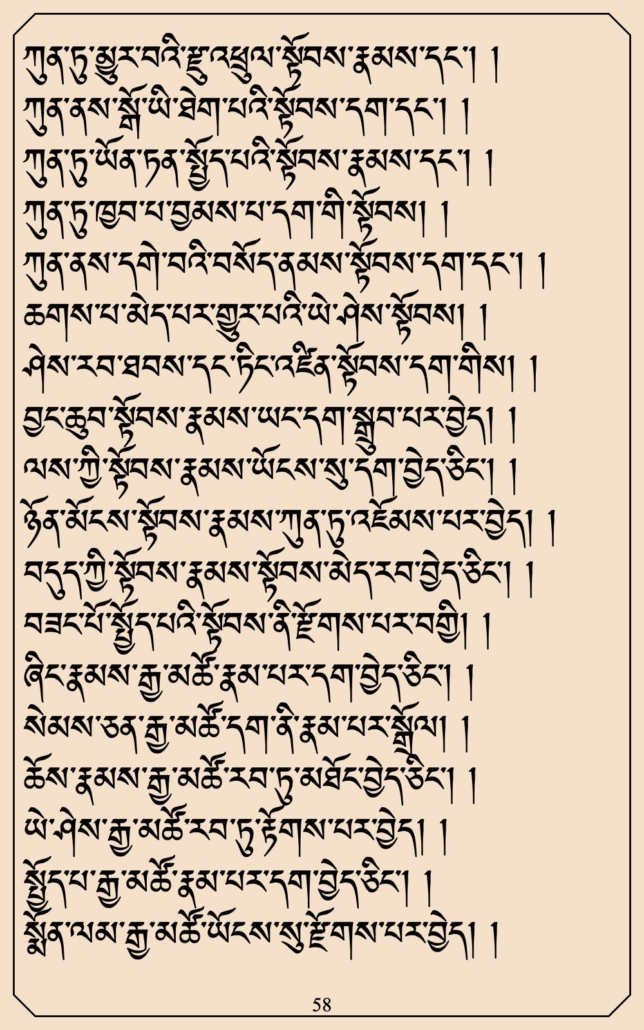 ཀུན་ཏུ་མྱུར་བའི་རྫུ་འཕྲུལ་སྟོབས་རྣམས་དང་། །
ཀུན་ནས་སྒོ་ཡི་ཐེག་པའི་སྟོབས་དག་དང་། །
ཀུན་ཏུ་ཡོན་ཏན་སྤྱོད་པའི་སྟོབས་རྣམས་དང་། །
ཀུན་ཏུ་ཁྱབ་པ་བྱམས་པ་དག་གི་སྟོབས། །
ཀུན་ནས་དགེ་བའི་བསོད་ནམས་སྟོབས་དག་དང་། །
ཆགས་པ་མེད་པར་གྱུར་པའི་ཡེ་ཤེས་སྟོབས། །
ཤེས་རབ་ཐབས་དང་ཏིང་འཛིན་སྟོབས་དག་གིས། །
བྱང་ཆུབ་སྟོབས་རྣམས་ཡང་དག་སྒྲུབ་པར་བྱེད། །
ལས་ཀྱི་སྟོབས་རྣམས་ཡོངས་སུ་དག་བྱེད་ཅིང་། །
ཉོན་མོངས་སྟོབས་རྣམས་ཀུན་ཏུ་འཇོམས་པར་བྱེད། །
བདུད་ཀྱི་སྟོབས་རྣམས་སྟོབས་མེད་རབ་བྱེད་ཅིང་། །
བཟང་པོ་སྤྱོད་པའི་སྟོབས་ནི་རྫོགས་པར་བགྱི། །
ཞིང་རྣམས་རྒྱ་མཚོ་རྣམ་པར་དག་བྱེད་ཅིང་། །
སེམས་ཅན་རྒྱ་མཚོ་དག་ནི་རྣམ་པར་སྒྲོལ། །
ཆོས་རྣམས་རྒྱ་མཚོ་རབ་ཏུ་མཐོང་བྱེད་ཅིང་། །
ཡེ་ཤེས་རྒྱ་མཚོ་རབ་ཏུ་རྟོགས་པར་བྱེད། །
སྤྱོད་པ་རྒྱ་མཚོ་རྣམ་པར་དག་བྱེད་ཅིང་། །
སྨོན་ལམ་རྒྱ་མཚོ་ཡོངས་སུ་རྫོགས་པར་བྱེད། །
58